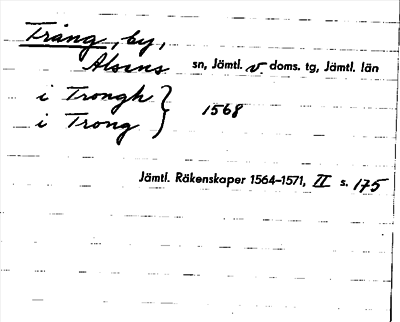 Trång, by,
Alsens sn, Jämtl. v. doms. tg, Jämtl. län
i Trongh } 1568
i Trong
Jämtl. Räkenskaper 1564–1571, II s. 175